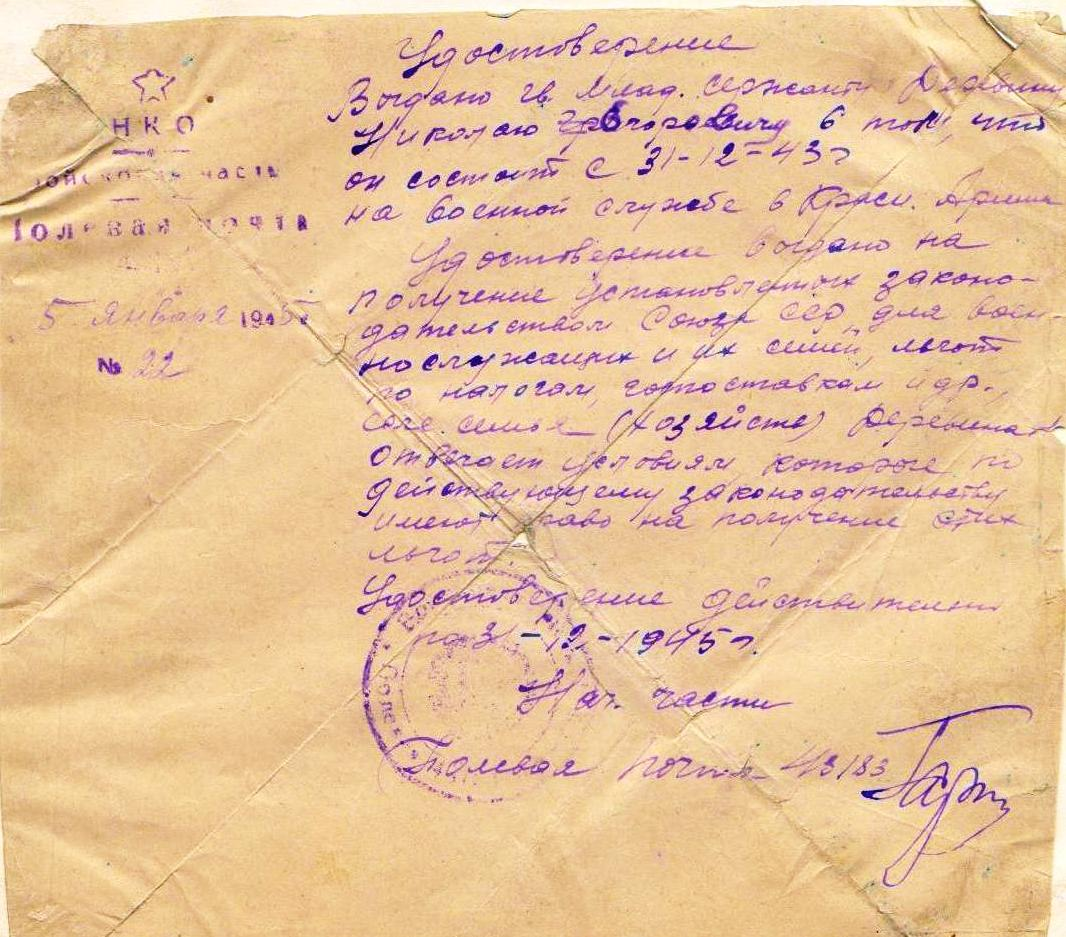 НКО
Войсковая часть
Полевая почта
5 января 1945
№ 22
Удостоверение
Выдано гв. млад. сержанту
Николаю в том, что
он состоит с 31-12-43г
на военной службе в Красн. Армии
Удостоверение выдано на
получение установленных законо-
дательством Союза ССР для воен-
нослужащих и их семей, льгот
по налогам, гопоставкам и др.,
семья (хозяйство)
отвечает условиям которые по
действующему законодательству
имеют право на получение этих
льгот.
Удостоверение действительно
по 31-12-1945г.
Нач. части
Полевая почта 43183